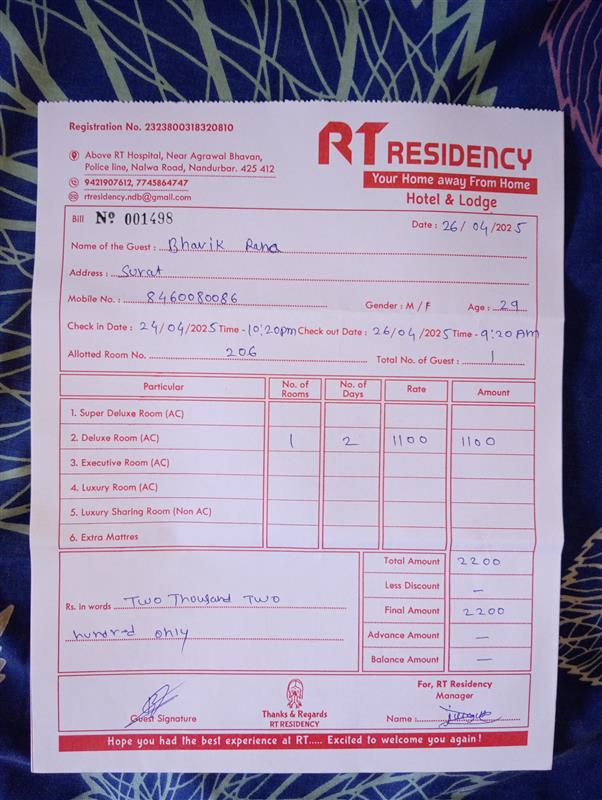 Registration No. 2323800318320810
RT RESIDENCY
Your Home away From Home
Hotel & Lodge
Above RT Hospital, Near Agrawal Bhavan,
Police line, Nalwa Road, Nandurbar. 425 412
9421907612, 7745864747
rtresidency.ndb@gmail.com
Bill No 001498
Date : 26/04/2025
Name of the Guest : Bhavik Rana
Address : Surat
Mobile No. : 8460080086 Gender : M / F Age : 29
Check in Date : 24/04/2025 Time - 10:20pm Check out Date : 26/04/2025 Time - 9:20 AM
Allotted Room No. 206 Total No. of Guest : 1
Particular No. of Rooms No. of Days Rate Amount
1. Super Deluxe Room (AC)
2. Deluxe Room (AC) 1 2 1100 1100
3. Executive Room (AC)
4. Luxury Room (AC)
5. Luxury Sharing Room (Non AC)
6. Extra Mattres
Total Amount 2200
Less Discount —
Rs. in words Two Thousand Two
hundred only
Final Amount 2200
Advance Amount —
Balance Amount —
For, RT Residency
Manager
Guest Signature
Thanks & Regards
RT RESIDENCY
Name :
Hope you had the best experience at RT..... Excited to welcome you again!